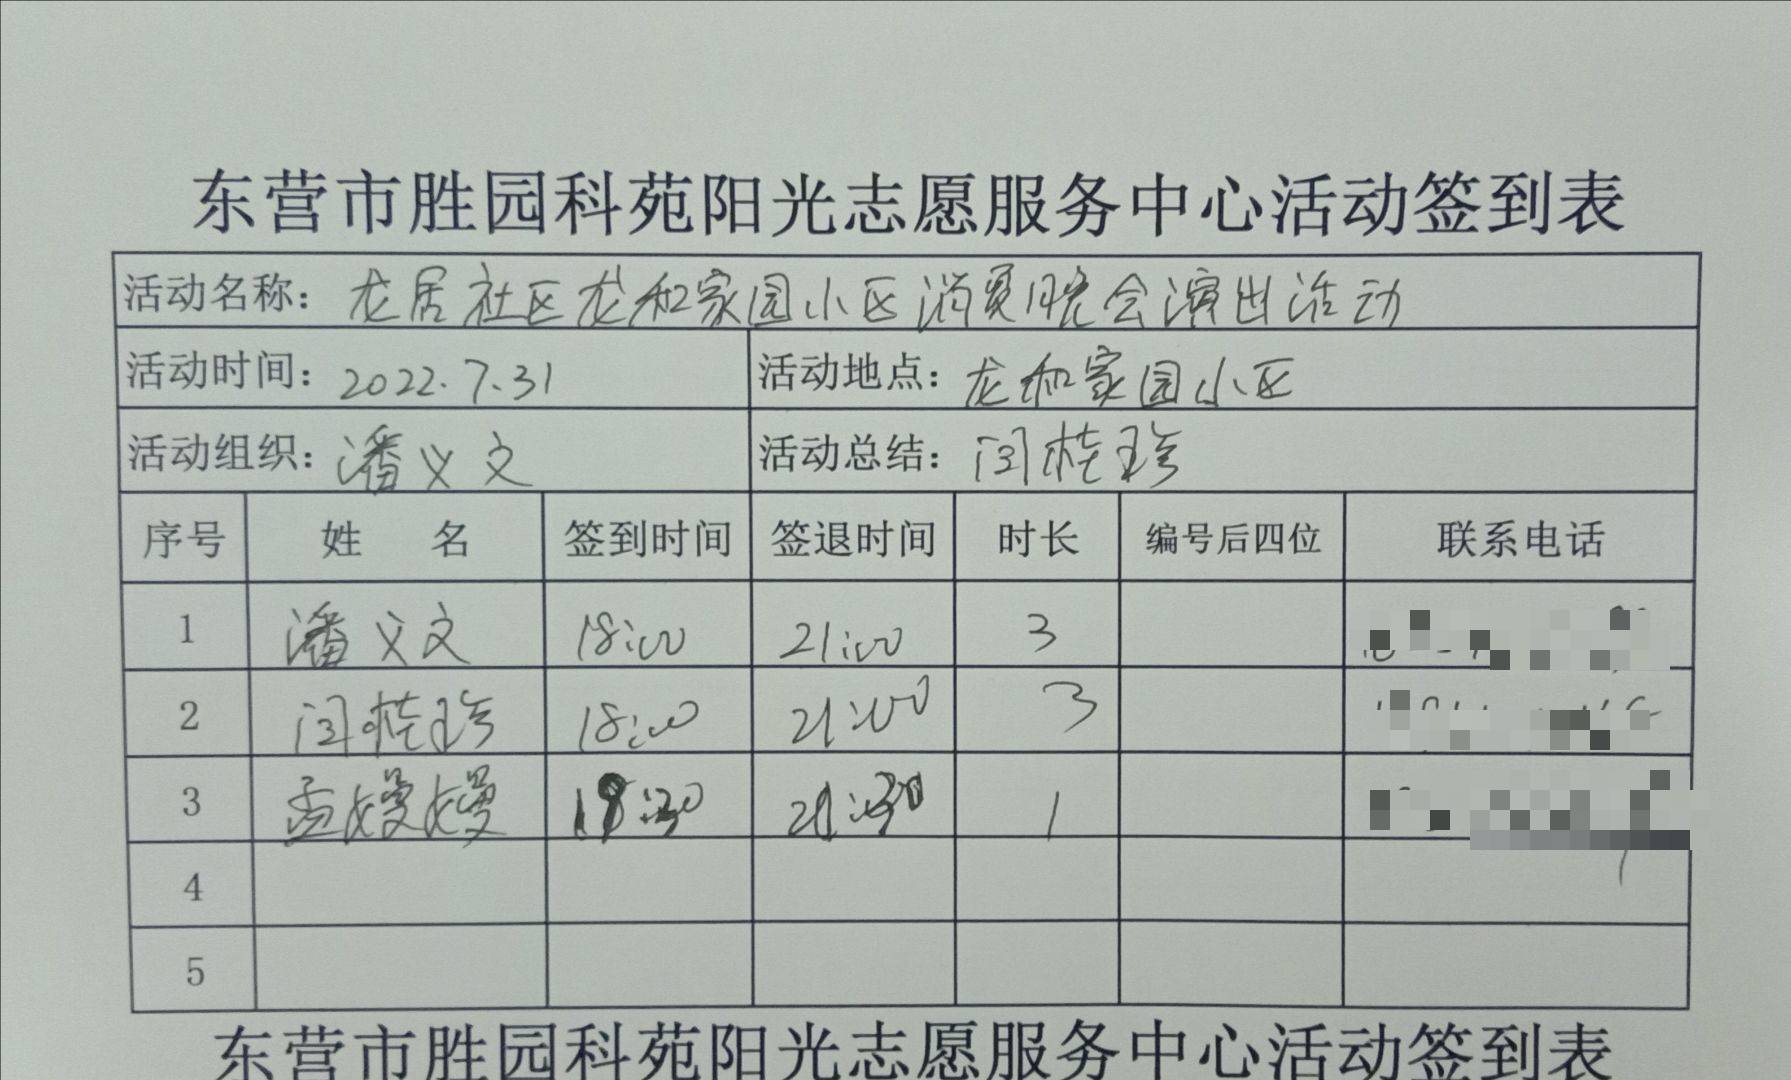 东营市胜园科苑阳光志愿服务中心活动签到表
活动名称：龙居社区龙和家园小区消夏晚会演出活动
活动时间：2022.7.31 活动地点：龙和家园小区
活动组织：潘义文 活动总结：闫桂珍
序号 姓名 签到时间 签退时间 时长 编号后四位 联系电话
1 潘义文 18:00 21:00 3
2 闫桂珍 18:00 21:00 3
3 孟嫚嫚 :30 1
4
5
东营市胜园科苑阳光志愿服务中心活动签到表